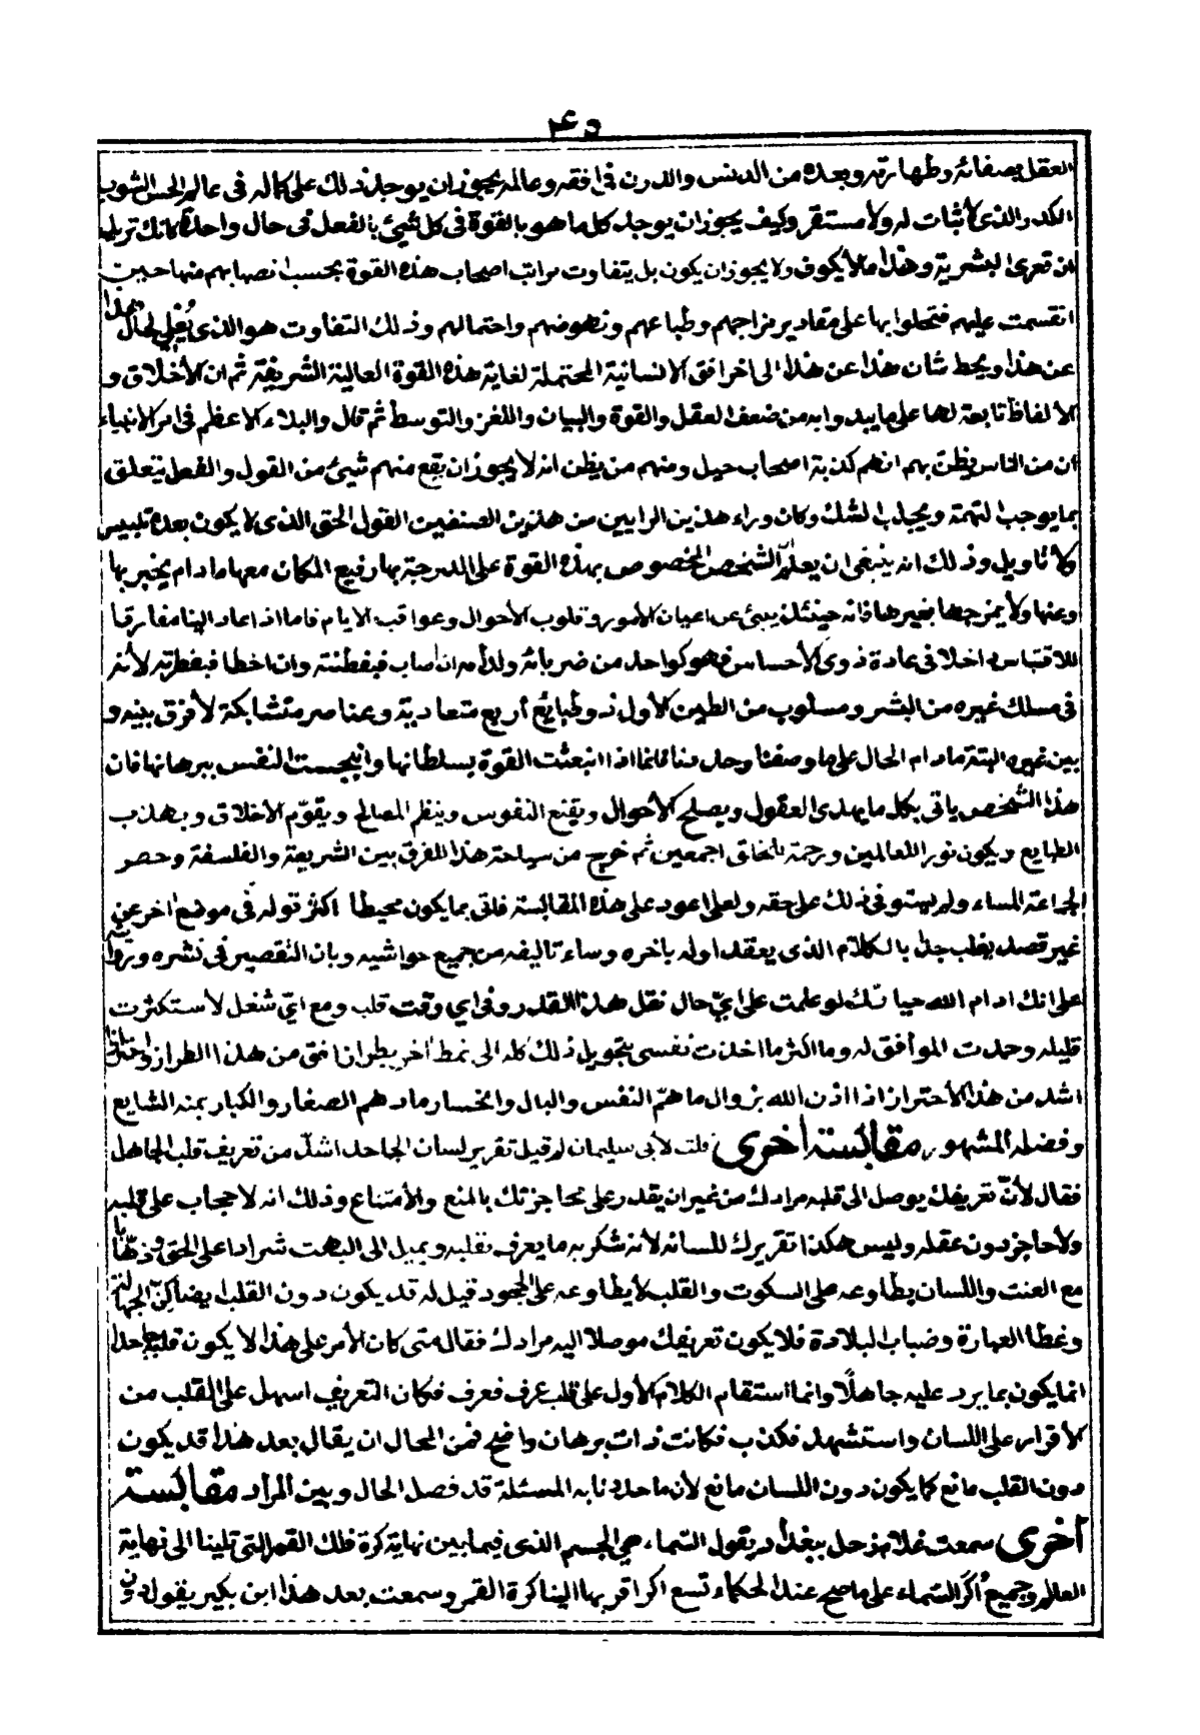 ٤٥
العقل بصفائه وطهارته وبعده من الدنس والدرن في افقه وعالمه يجوز ان يوجد ذلك على كماله في عالم الحس الشوب
الكدر الذى لاثبات له ولا مستقر وكيف يجوز ان يوجد كل ما هو بالقوة في كل شيئ بالفعل في حال واحدة كانك تريد
ان تعرى البشرية وهذا مالا يكون ولا يجوز ان يكون بل يتفاوت مراتب اصحاب هذه القوة بحسب انصبائهم منها حين
انقسمت عليهم فتحلوا بها على مقادير مزاجهم وطباعهم ونهوضهم واحتمالهم وذلك التفاوت هو الذى يُعلي لحال هذا
عن هذا ويحط شان هذا عن هذا الى اخر افق الانسانية المحتملة لغاية هذه القوة العالية الشريفة ثم ان الأخلاق و
الالفاظ تابعة لها على ما يبدوا به من ضعف العقل والقوة والبيان واللغز والتوسط ثم قال والبلاء الاعظم في امر الانبياء
ان من الناس يظن بهم انهم كذبة اصحاب حيل ومنهم من يظن انه لا يجوز ان يقع منهم شيئ من القول والفعل يتعلق
بما يوجب التهمة ويجلب الشك وكان وراء هذين الرايين من هذين الصنفين القول الحق الذى لا يكون بعده تلبيس
ولا تاويل وذلك انه ينبغي ان يعلم الشخص المخصوص بهذه القوة على الدرجة بها رفيع المكان معها مادام يخبر بها
وعنها ولا يمزجها بغيرها فانه حينئذ ينبئ عن اعيان الأمور وقلوب الأحوال وعواقب الايام فاما اذا عاد الينا مفارقا
للاقتباس داخلا في عادة ذوى الأحساس فهو كواحد من ضربائه ولدامه ان أصاب فبفطنته وان اخطا فبفطرته لأنه
في مسلك غيره من البشر ومسلوب من الطين الأول ذو طبائع أربع متعادية وعناصر متشابكة لا فرق بينه و
بين غيره البتة مادام الحال على ما وصفنا وحددنا فاما اذا انبعثت القوة بسلطانها وانبجست النفس ببرهانها فان
هذا الشخص ياتى بكل ما يهدى العقول ويصلح الأحوال ويقنع النفوس وينظم المصالح ويقوّم الأخلاق ويهذب
الطبايع ويكون نورا للعالمين ورحمة للخلق اجمعين ثم خرج من سياحة هذا المفرق بين الشريعة والفلسفة وحصر
الجماعة المساء ولم يستوفى ذلك على حقه ولعلى اعود على هذه المقابسة فاتى بما يكون محيطا اكثر قوله في موضع اخر عن
غير قصد يغلب جدا بالكلام الذى يعقد اوله باخره وساء تاليفه من جميع حواشيه وبان التقصير في نشره وروايته
على انك ادام الله حياتك لو علمت على ايّ حال نقل هذا القدر وفي اي وقت قلب ومع ايّ شغل لاستكثرت
قليله وحمدت الموافق له وما اكثر ما اخذت نفسى بتحويل ذلك كله الى نمط أخر بطراز انق من هذا الطراز واحتراز
اشد من هذا الأحتراز اذا اذن الله بزوال ما همّ النفس والبال وانحسار ما دهم الصغار والكبار بمنه الشايع
وفضله المشهور مقابسة أخرى قلت لأبى سليمان لم قيل تقرير لسان الجاحد اشدّ من تعريف قلب الجاهل
فقال لأنّ تعريفك يوصل الى قلبه مرادك من غير ان يقدر على محاجزتك بالمنع والأمتناع وذلك انه لا حجاب على قلبه
ولا حاجز دون عقله وليس هكذا تقريرك للسانه لأنه شكر به ما يعرف بقلبه ويميل الى البهت شرادا على الحق وذهابا
مع العنت واللسان يطاوعه على السكوت والقلب لا يطاوعه على الجحود قيل له قد يكون دون القلب ايضا كنّ الجهالة
وغطا الغمارة وضباب البلادة فلا يكون تعريفك موصلا اليه مرادك فقال متى كان الأمر على هذا لا يكون قلبه جاحدا
انما يكون بما يرد عليه جاهلا وانما استقام الكلام الأول على قلب عرف فعرف فكان التعريف اسهل على القلب من
الأقرار على اللسان واستشهد فكذب فكانت ذات برهان واضح فمن المحال ان يقال بعد هذا قد يكون
دون القلب مانع كما يكون دون اللسان مانع لأن ما حددنا به المسئلة قد فصل الحال وبين المراد مقابسة
أخرى سمعت غلام زحل ببغداد يقول السماء هي الجسم الذى فيما بين نهاية كرة فلك القمر التى تلينا الى نهاية
العالم وجميع أكر السماء على ما صح عند الحكماء تسع اكر اقربها الينا كرة القمر وسمعت بعد هذا ابن بكير يقول دون